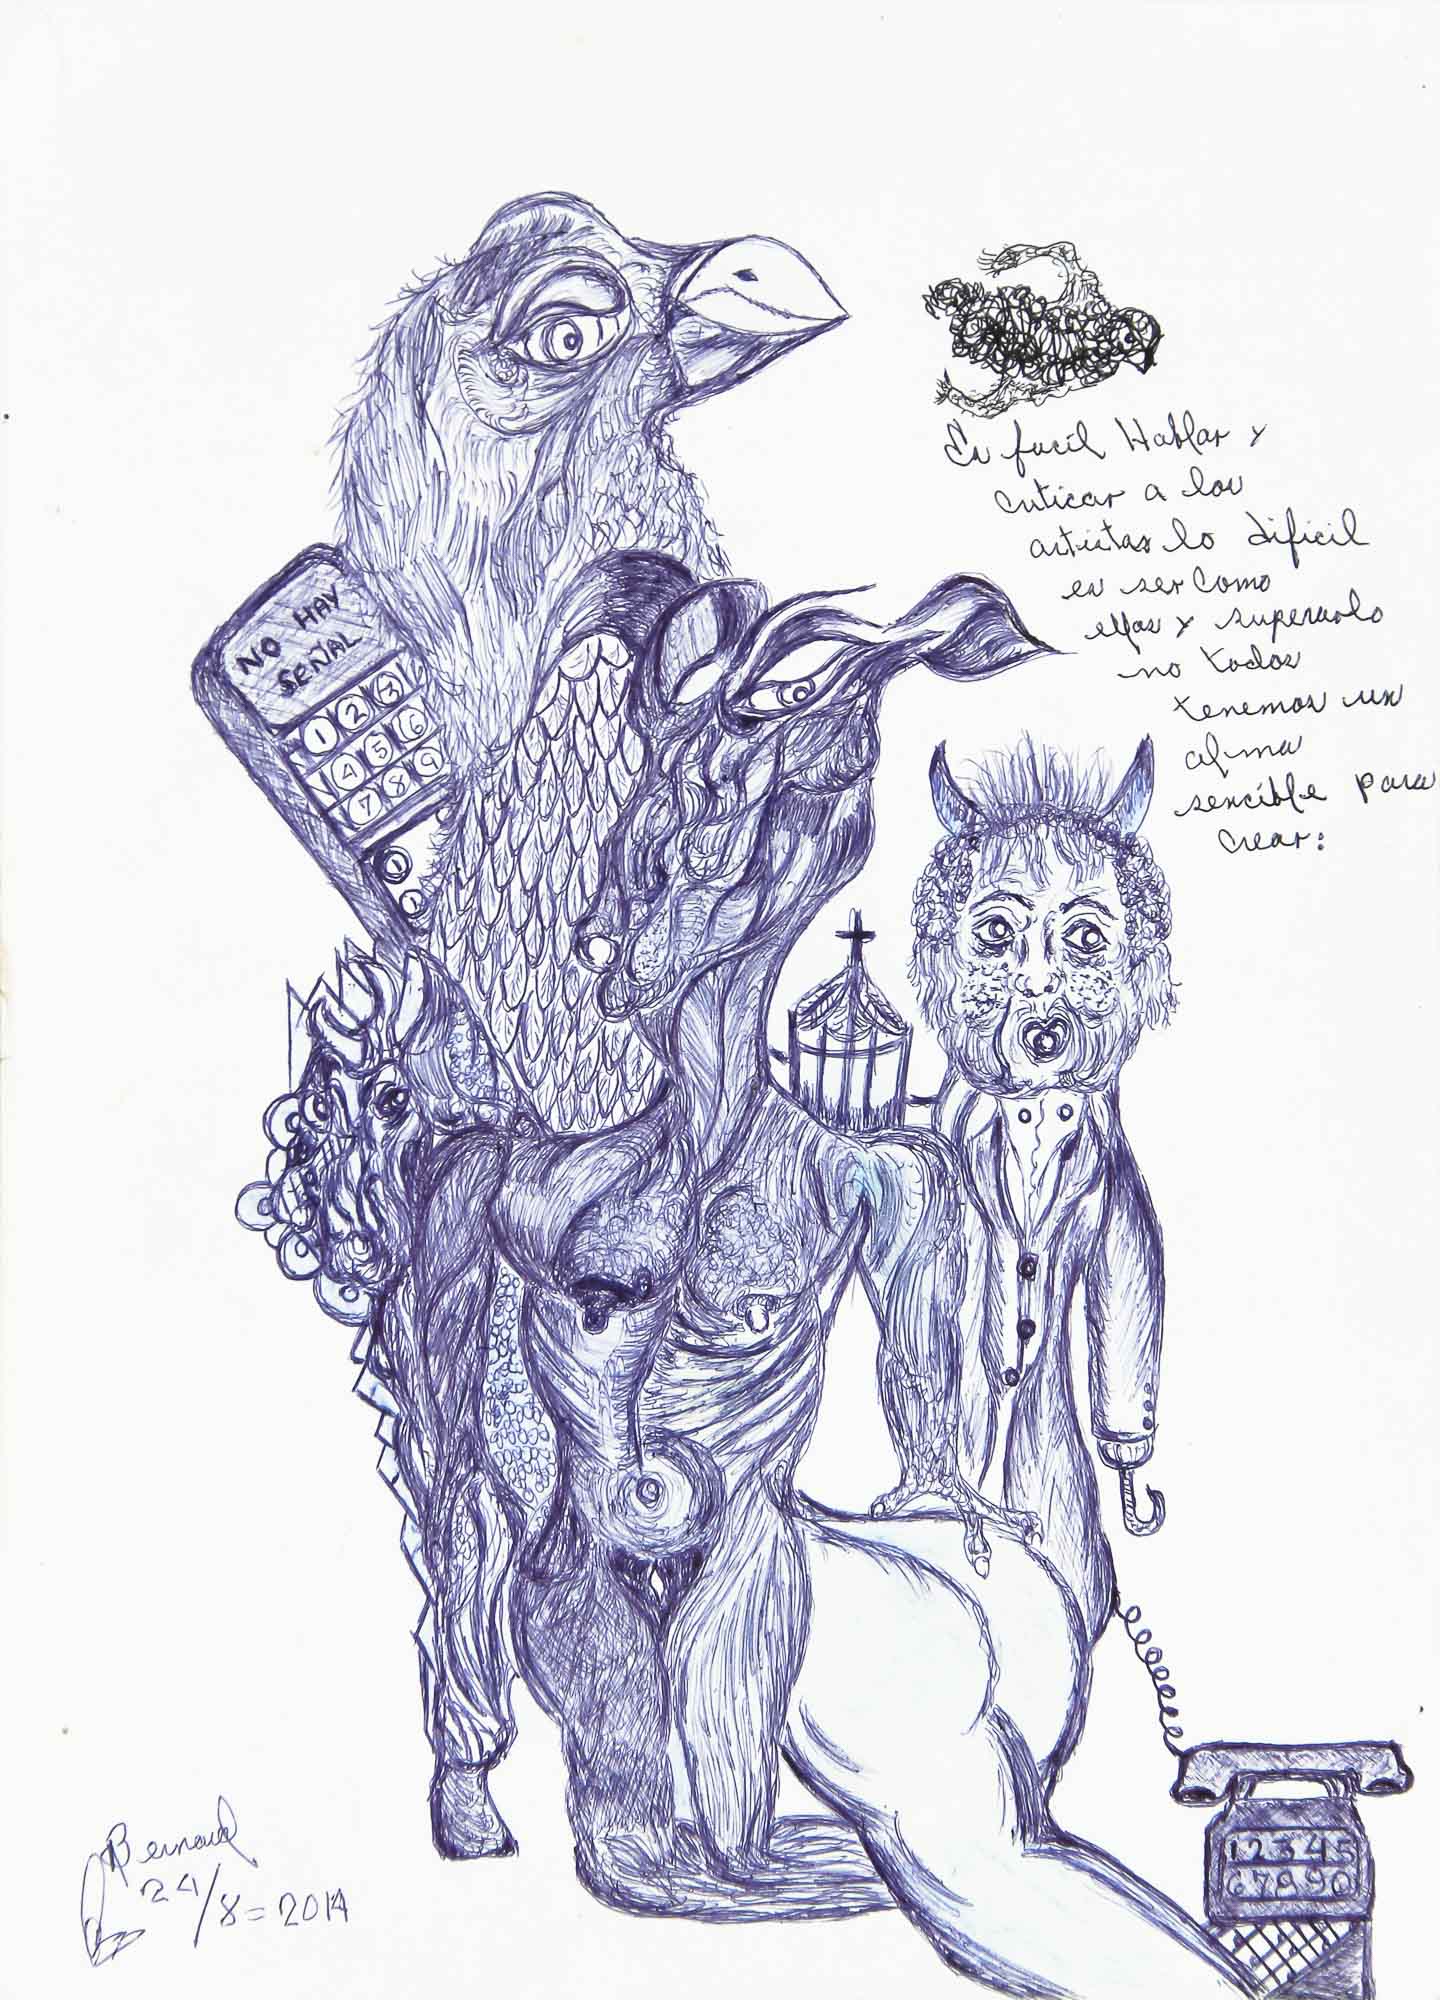 Es facil Hablar y
criticar a los
artistas lo dificil
es ser como
ellos y superarlo
no todos
tenemos un
alma
sencible para
crear:
NO HAY
SEÑAL
1 2 3
4 5 6
7 8 9
1 2 3 4 5
6 7 8 9 0
Bernard
24/8=2014